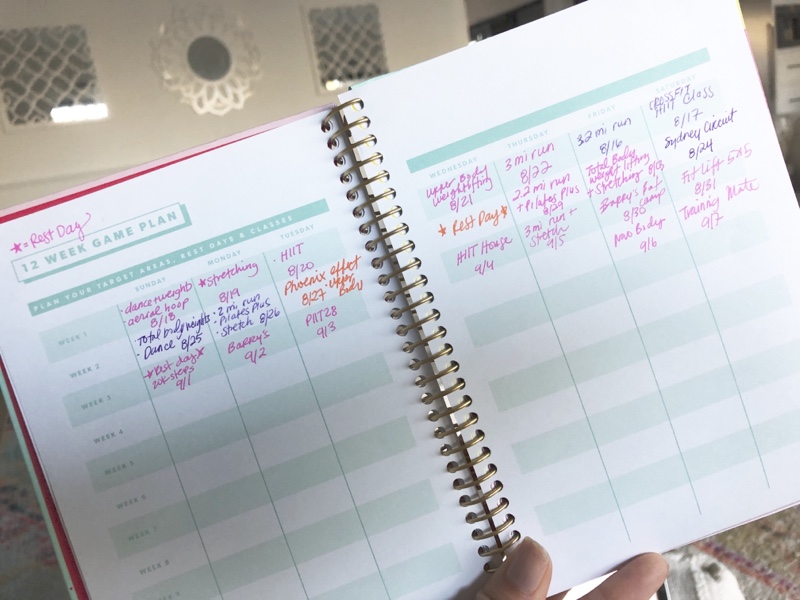 *=Rest Day
12 WEEK GAME PLAN
PLAN YOUR TARGET AREAS, REST DAYS & CLASSES
SUNDAY
MONDAY
TUESDAY
WEEK 1
• dance + weights
• aerial hoop
8/18
*Stretching
8/19
• HIIT
8/20
WEEK 2
• Total body weights
• Dance 8/25
• 2 mi run
• Pilates Plus
• Stretch 8/26
Phoenix effect
8/27 • Upper
Body
WEEK 3
*rest day*
20k steps
9/1
Barry's
9/2
PIIT28
9/3
WEEK 4
WEEK 5
WEEK 6
WEEK 7
WEEK 8
WEDNESDAY
THURSDAY
FRIDAY
SATURDAY
3.2 mi run
8/16
CROSSFIT
HIIT Class
8/17
Upper Body
weightlifting
8/21
3 mi run
8/22
Total Body
weight lifting
+ Stretching 8/23
Sydney Circuit
8/24
* Rest Day *
2.2 mi run
+ Pilates Plus
8/29
8/30
Fit Lift 5x5
8/31
HIIT House
9/4
3 mi run +
Stretch
9/5
Body
9/6
Training Mate
9/7